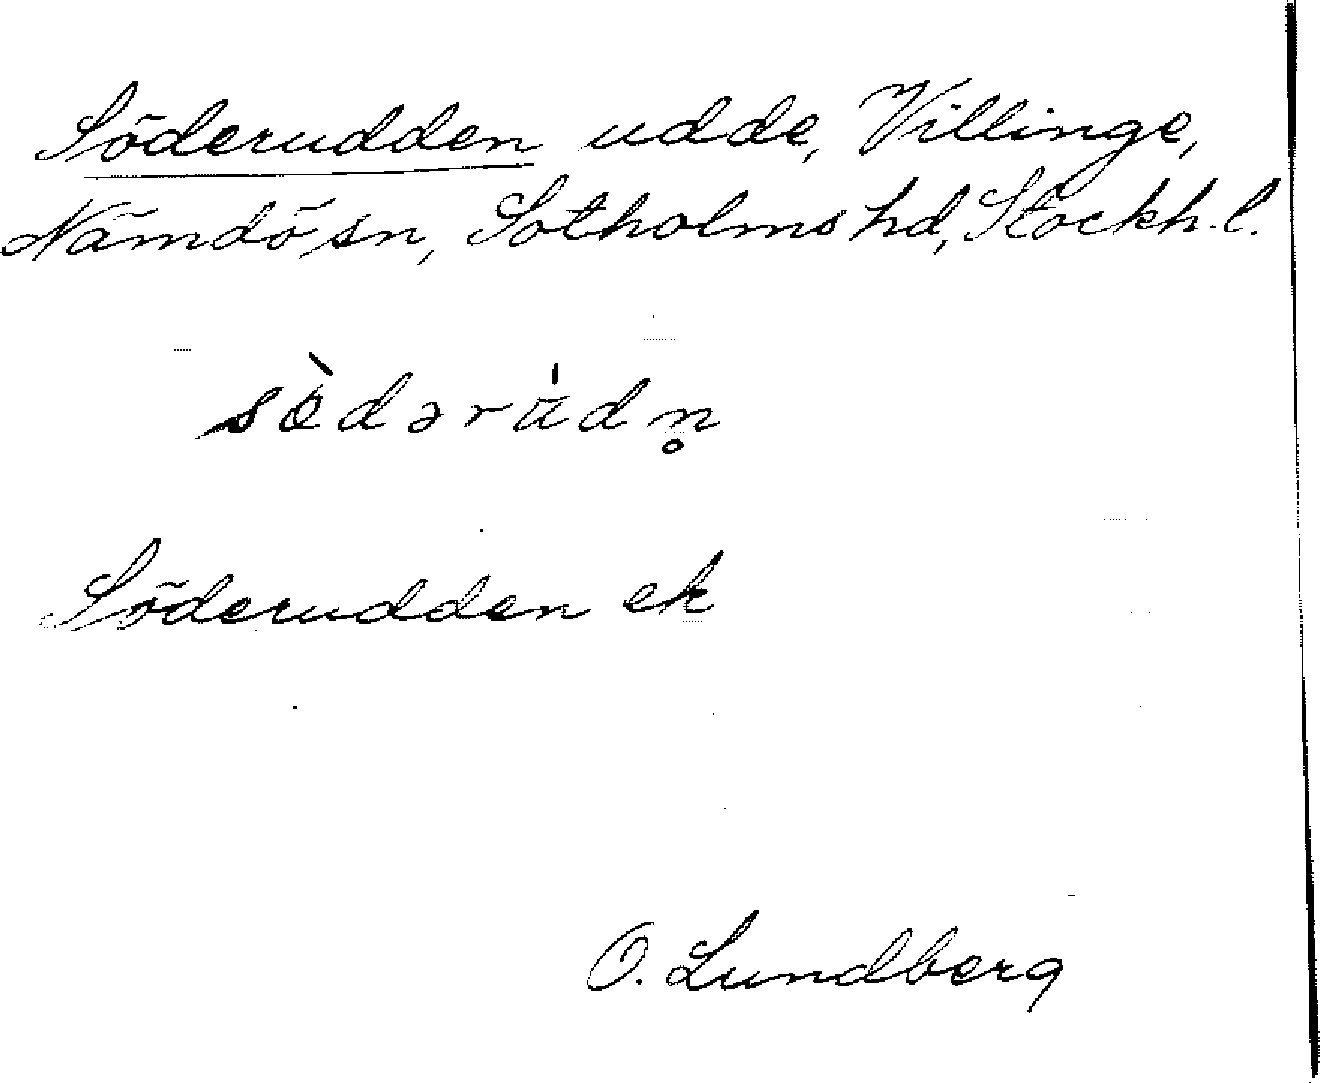 Söderudden udde, Villinge,
Nämdö sn, Sotholms hd, Stockh. l.
sö̀dəru̍dn̥
Söderudden ek
O. Lundberg